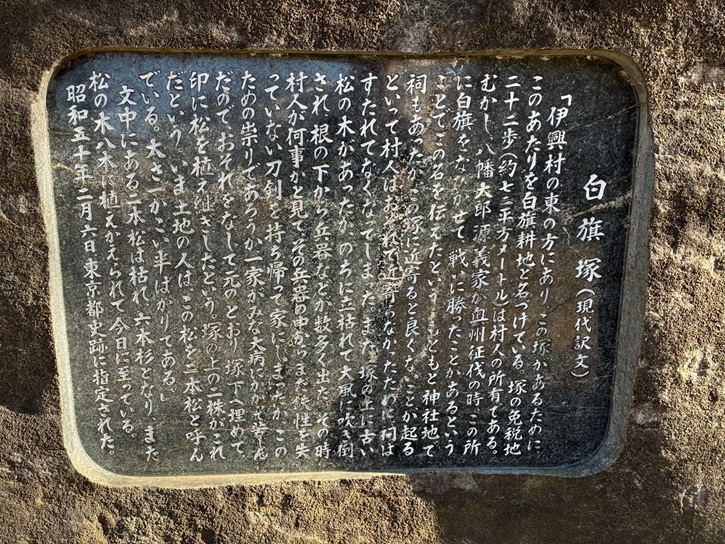 白旗塚(現代訳文)
「伊興村の東の方にあり、この塚があるために
このあたりを白旗耕地と名づけている。塚の免税地
二十二歩(約七二平方メートル)は村人の所有である。
むかし、八幡太郎源義家が奥州征伐の時、この所
に白旗をなびかせて、戦に勝ったことがあるという
ことで、この名を伝えたという。もともと神社地で
祠もあったが、この塚に近寄ると良くないことが起る
といって村人はおそれて近寄らなかったために、祠は
すたれてなくなってしまった。また、塚の上に古い
松の木があったが、のちに立枯れて大風に吹き倒
され、根の下から兵器などが数多く出た。その時
村人が何事かと見て、その兵器の中からまだ鉄性を失
っていない刀剣を持ち帰って家にしまったが、この
ための祟りであろうか一家がみな大病にかかり
だので、おそれをなして元のとおり、塚下へ埋めて
印に松を植え継ぎしたという。塚の上の二株がこれ
だという。いま土地の人は、この松を二本松と呼ん
でいる。大さ一かこい半ばかりである。」
文中にある二本松は枯れ、六本杉となり、また
松の木八本に植えかえられて今日に至っている。
昭和五十年二月六日東京都史跡に指定された。